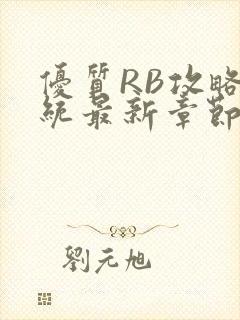 優質RB攻略
統最新章節
劉元旭